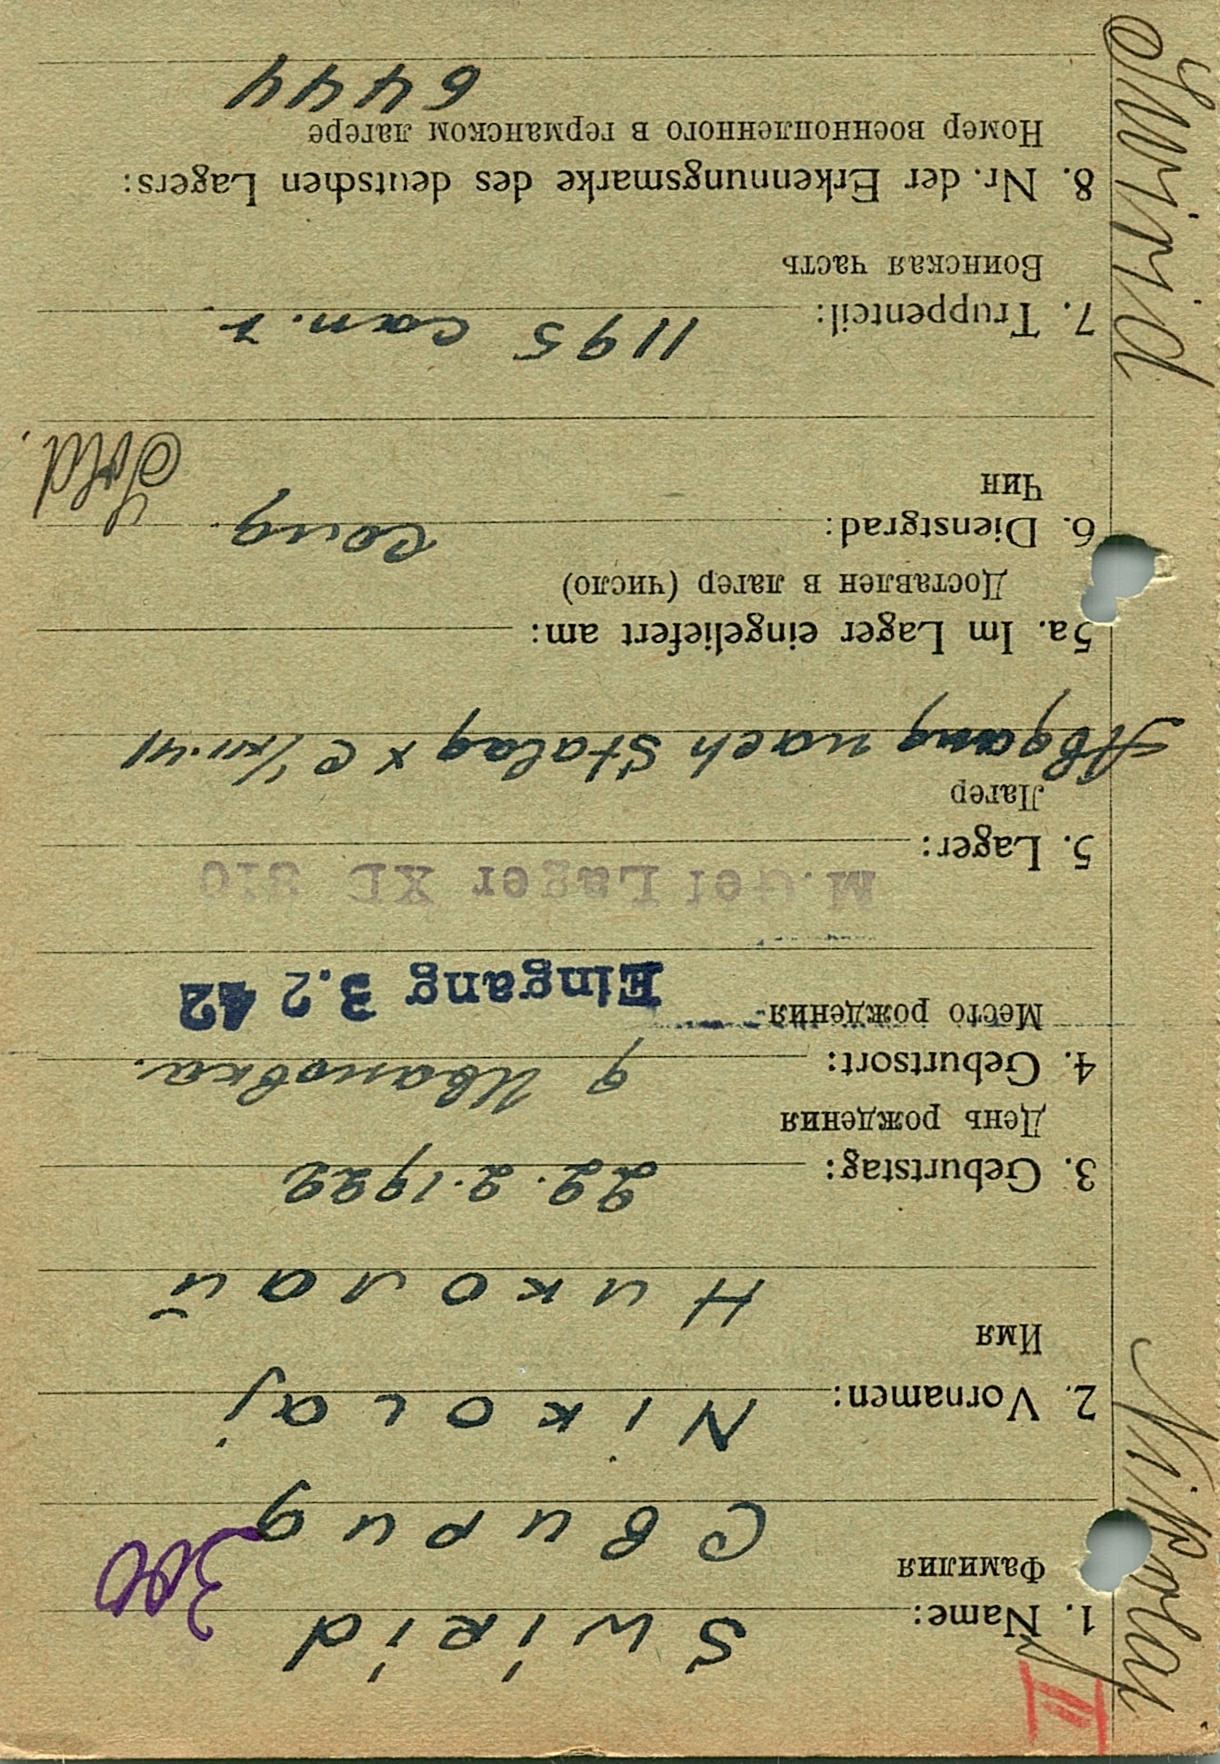 III
1. Name: Swirid
Фамилия
Свирид
2. Vornamen: Nikolaj
Имя
Николай
3. Geburtstag: 22.2.1922
День рождения
4. Geburtsort: д Ивановка.
Место рождения
Eingang 3.2 42
M.Gef Lager XD 310
5. Lager:
Лагер
Abgang nach Stalag X C 1/XII.41
5a. Im Lager eingeliefert am:
Доставлен в лагер (число)
6. Dienstgrad: солд. Sold.
Чин
7. Truppenteil: 1195
Воинская часть
8. Nr. der Erkennungsmarke des deutschen Lagers:
Номер военнопленного в германском лагере
6444
Swirid Nikolaj